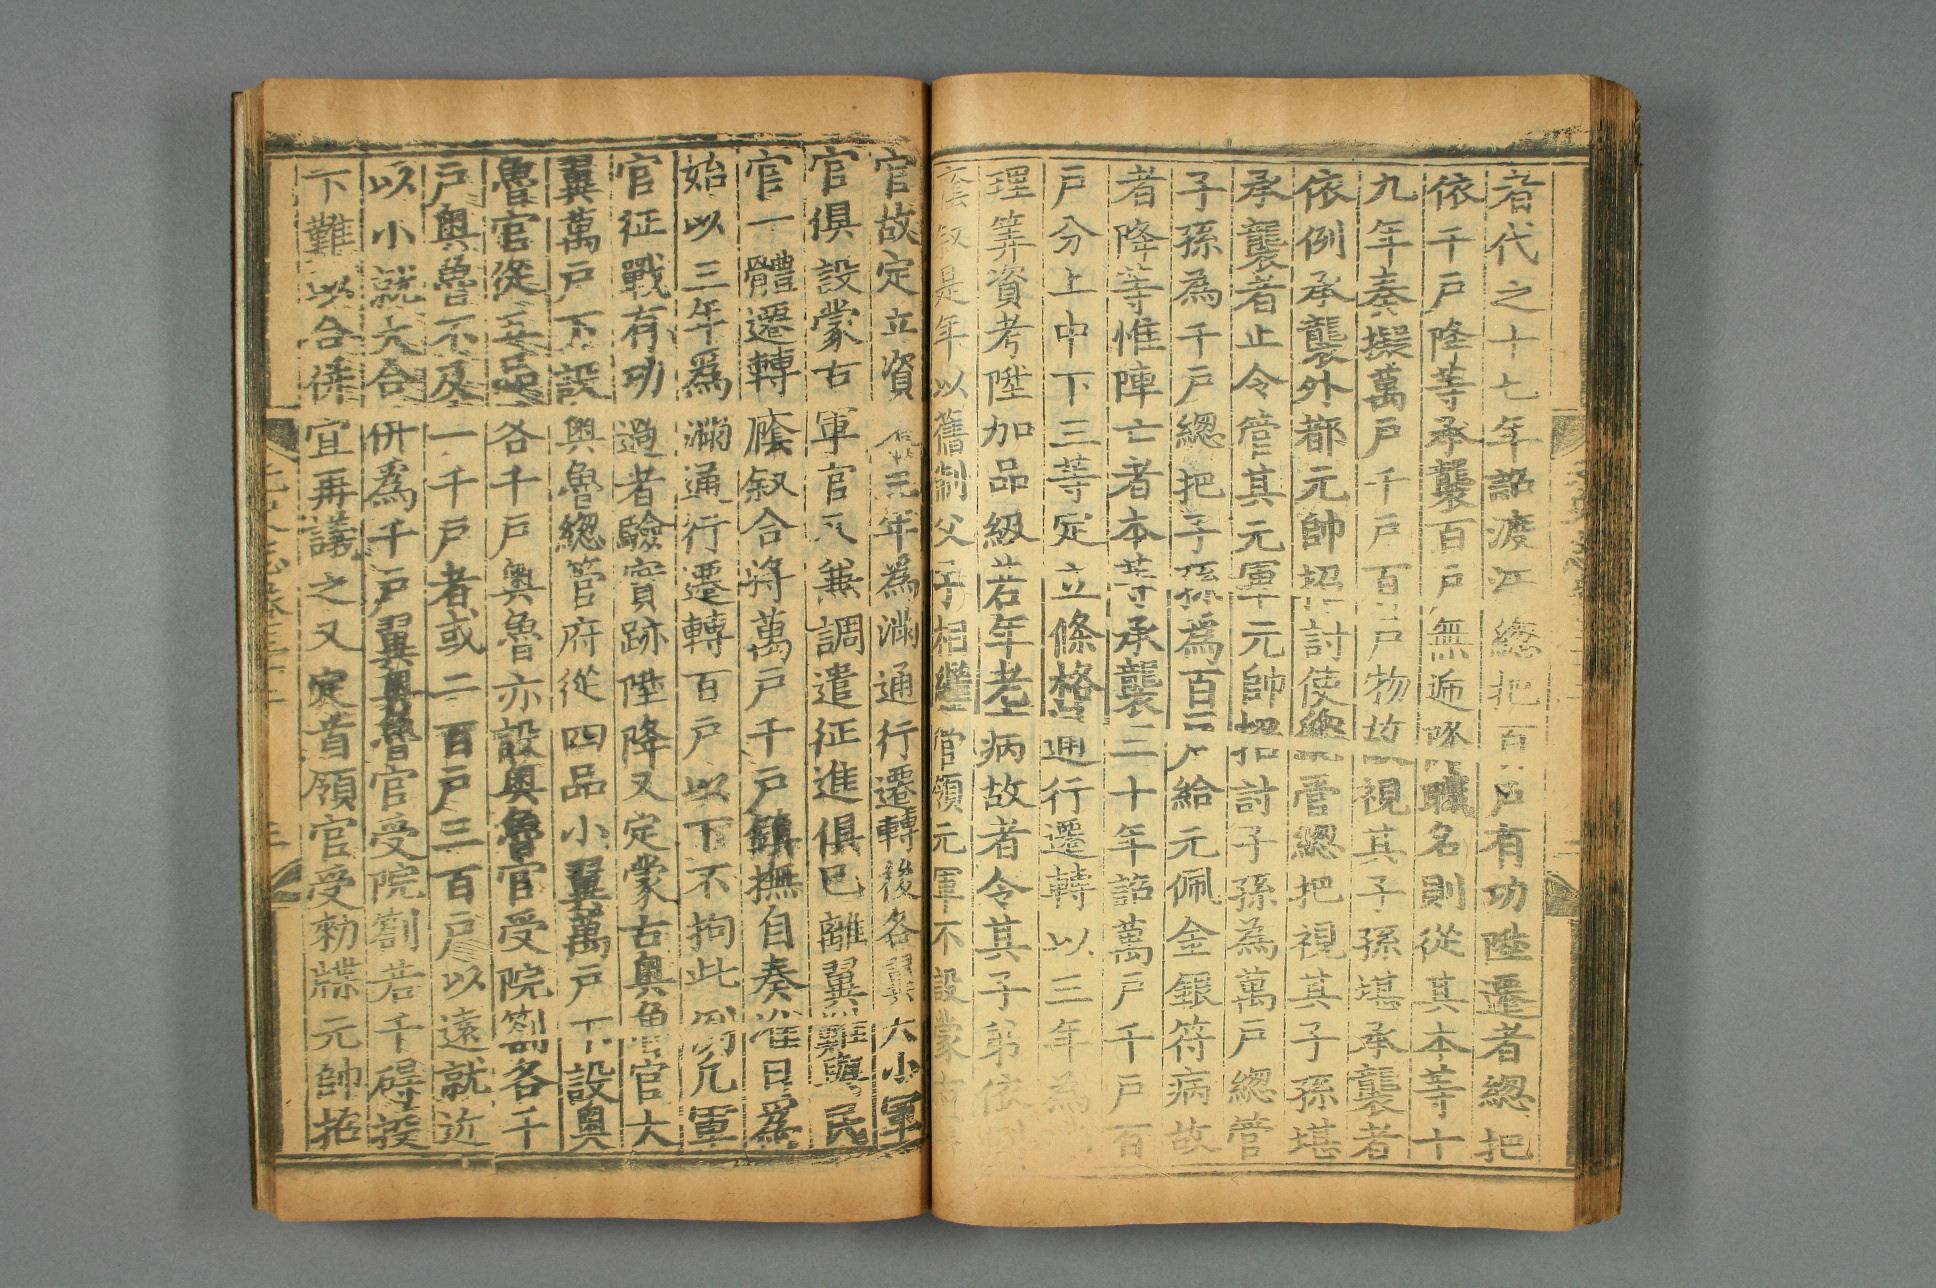 者代之十七年詔渡江總把百戶有功陞遷者總把
依千戶降等承襲百戶無遞降職名則從其本等十
九年奏擬萬戶千戶百戶物故視其子孫堪承襲者
依例承襲外都元帥招討使總管總把視其子孫堪
承襲者止令管其元軍元帥招討子孫為萬戶總管
子孫為千戶總把子孫為百戶給元佩金銀符病故
者降等惟陣亡者本等承襲二十年詔萬戶千戶百
戶分上中下三等定立條格通行遷轉以三年為
理筭資考陞加品級若年老病故者令其子弟依
廕叙是年以舊制父子相繼管領元軍不設蒙古
官故定立資 三年為滿通行遷轉後各翼大小軍
官俱設蒙古軍官又兼調遣征進俱已離翼難與民
官一體遷轉廕叙合將萬戶千戶鎮撫自奏准日為
始以三年爲滿通行遷轉百戶以下不拘此例凡軍
官征戰有功過者驗實跡陞降又定蒙古奧魯官大
翼萬戶下設奧魯總管府從四品小翼萬戶下設奧
魯官從五品各千戶奧魯亦設奧魯官受院劄各千
戶奧魯不及一千戶者或二百戶三百戶以遠就近
以小就大合併爲千戶翼奧魯官受院劄若干碍投
下難以合併宜再議之又定首領官受勑牒元帥招